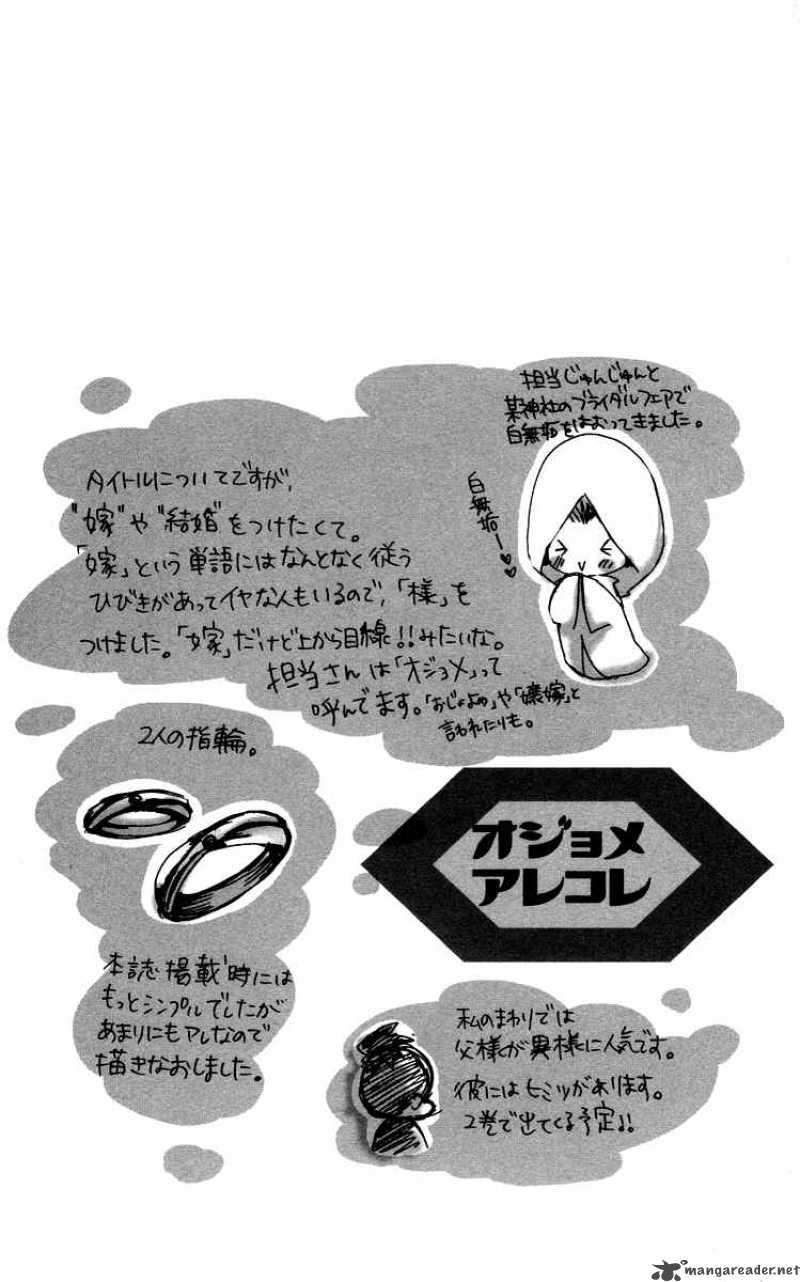 担当じゅんじゅんと
某神社のブライダルフェアで
白無垢をはおってきました。
白無垢ー♡♡
タイトルについてですが、
"嫁"や"結婚"をつけたくて。
「嫁」という単語にはなんとなく従う
ひびきがあってイヤな人もいるので、「様」を
つけました。「嫁」だけど上から目線!!みたいな。
担当さんは「オジョメ」って
呼んでます。「おじょよめ」や「嬢嫁」と
言われたりも。
2人の指輪。
本誌掲載時には
もっとシンプルでしたが
あまりにもアレなので
描きなおしました。
オジョメ
アレコレ
私のまわりでは
父様が異様に人気です。
彼にはヒミツがあります。
2巻で出てくる予定♪!
mangareader.net